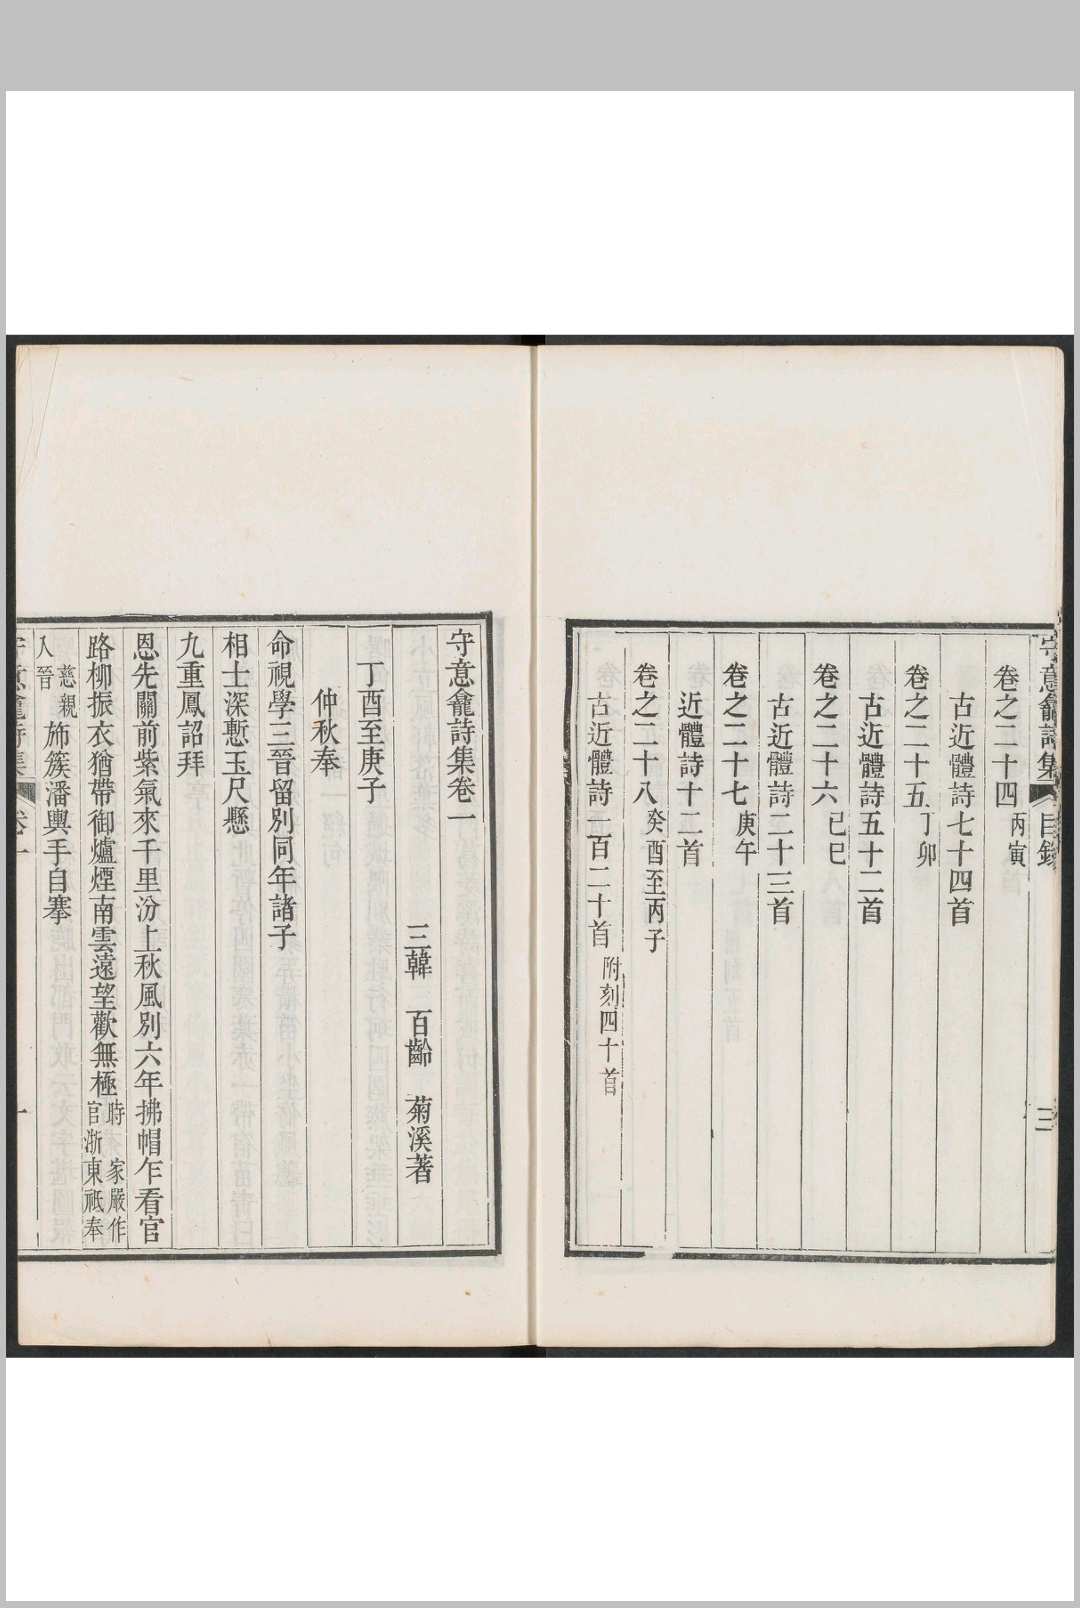 守意龕詩集 目錄 三
卷之二十四 丙寅
古近體詩七十四首
卷之二十五 丁卯
古近體詩五十二首
卷之二十六 己巳
古近體詩二十三首
卷之二十七 庚午
近體詩十二首
卷之二十八 癸酉至丙子
古近體詩一百二十首 附刻四十首
守意龕詩集卷一
三韓 百齡 菊溪著
丁酉至庚子
仲秋奉
命視學三晉留別同年諸子
相士深慙玉尺懸
九重鳳詔拜
恩先關前紫氣來千里汾上秋風別六年拂帽乍看官
路柳振衣猶帶御爐煙南雲遠望歡無極 時 家嚴作官浙東祗奉
慈親入晉 斾簇潘輿手自搴
守意龕詩集 卷一 一